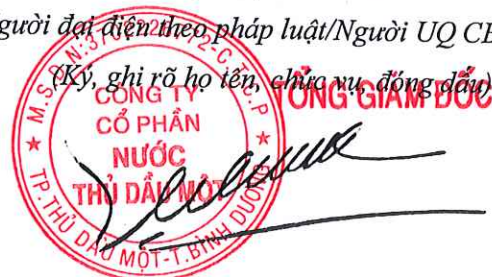 gười đại diện theo pháp luật/Người UQ CB
(Ký, ghi rõ họ tên, chức vụ, đóng dấu)
TỔNG GIÁM ĐỐC
M.S.D.N: C.T.C.P
CÔNG TY
CỔ PHẦN
NƯỚC
THỦ DẦU MỘT
TP. THỦ DẦU MỘT-T. BÌNH DƯƠNG